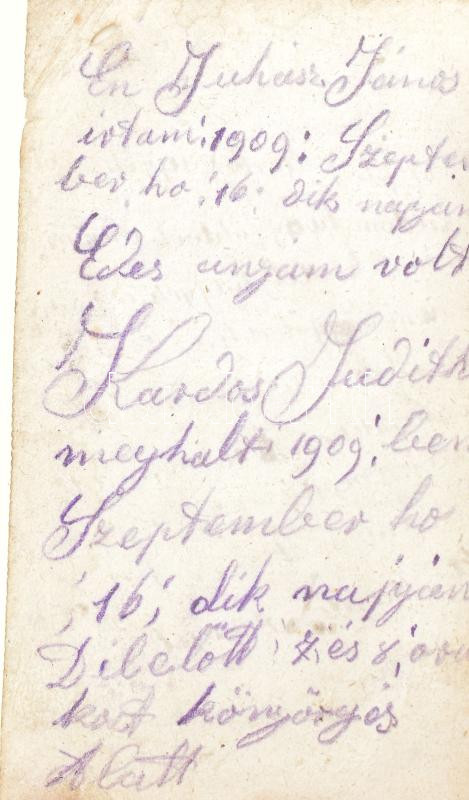 Én Juhász János
irtam: 1909: Szepte
ber hó: 16: dik napján
Édes anyám volt
Kardos Judith
meghalt 1909, ben
Szeptember ho
, 16, dik napján
Délelött 7, és 8, óra
kort könyörgés
Alatt